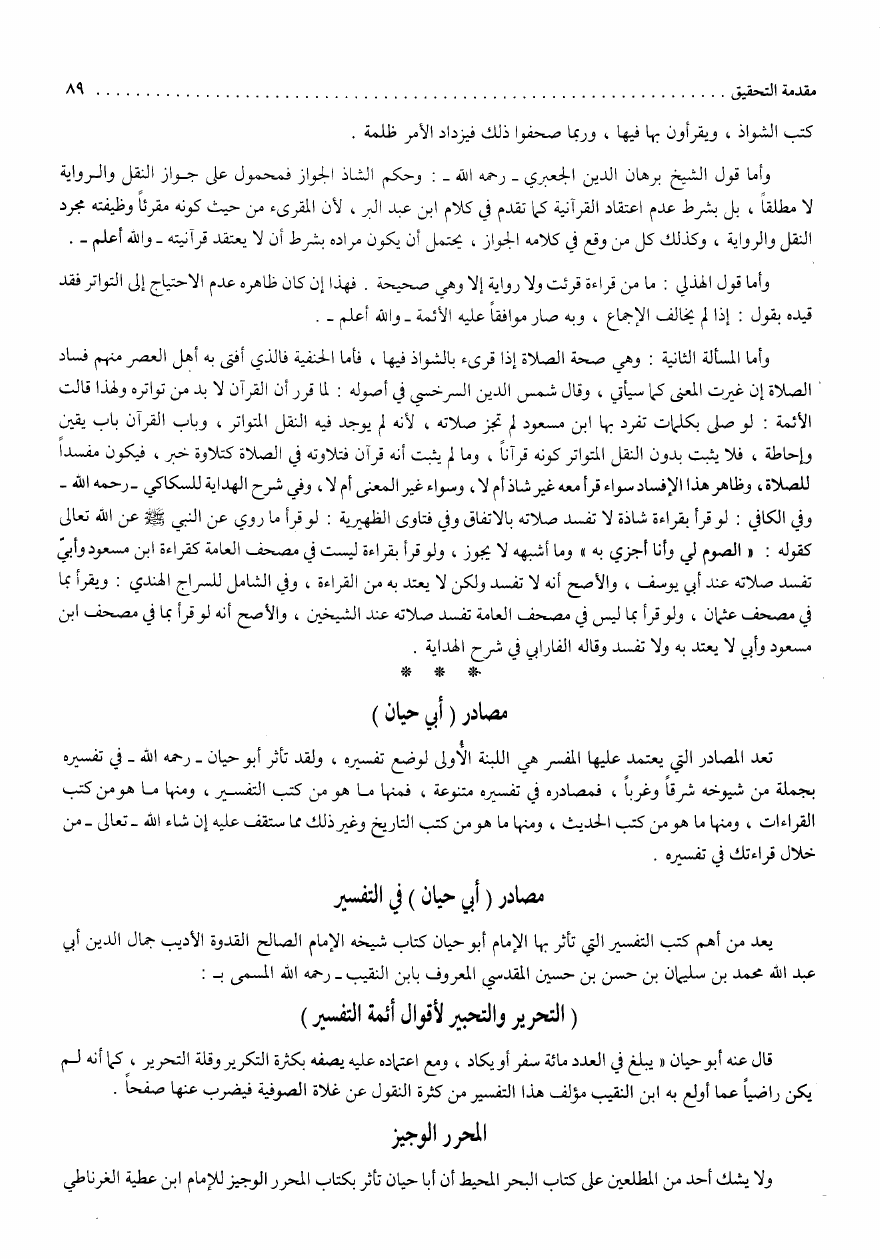 مقدمة التحقيق ........................................................ ٨٩
كتب الشواذ ، ويقرأون بها فيها ، وربما صحفوا ذلك فيزداد الأمر ظلمة .
وأما قول الشيخ برهان الدين الجعبري ـ رحمه الله ـ : وحكم الشاذ الجواز فمحمول على جواز النقل والرواية
لا مطلقاً ، بل بشرط عدم اعتقاد القرآنية كما تقدم في كلام ابن عبد البر ، لأن المقرىء من حيث كونه مقرئاً وظيفته مجرد
النقل والرواية ، وكذلك كل من وقع في كلامه الجواز ، يحتمل أن يكون مراده بشرط أن لا يعتقد قرآنيته ـ والله أعلم ـ .
وأما قول الهذلي : ما من قراءة قرئت ولا رواية إلا وهي صحيحة . فهذا إن كان ظاهره عدم الاحتياج إلى التواتر فقد
قيده بقول : إذا لم يخالف الإجماع ، وبه صار موافقاً عليه الأئمة ـ والله أعلم ـ .
وأما المسألة الثانية : وهي صحة الصلاة إذا قرىء بالشواذ فيها ، فأما الحنفية فالذي أفتى به أهل العصر منهم فساد
الصلاة إن غيرت المعنى كما سيأتي ، وقال شمس الدين السرخسي في أصوله : لما قرر أن القرآن لا بد من تواتره ولهذا قالت
الأئمة : لو صلى بكلمات تفرد بها ابن مسعود لم تجز صلاته ، لأنه لم يوجد فيه النقل المتواتر ، وباب القرآن باب يقين
وإحاطة ، فلا يثبت بدون النقل المتواتر كونه قرآناً ، وما لم يثبت أنه قرآن فتلاوته في الصلاة كتلاوة خبر ، فيكون مفسداً
للصلاة ، وظاهر هذا الإفساد سواء قرأ معه غير شاذ أم لا ، وسواء غير المعنى أم لا ، وفي شرح الهداية للسكاكي ـ رحمه الله ـ
وفي الكافي : لو قرأ بقراءة شاذة لا تفسد صلاته بالاتفاق وفي فتاوى الظهيرية : لو قرأ ما روي عن النبي ﷺ عن الله تعالى
كقوله : « الصوم لي وأنا أجزي به » وما أشبهه لا يجوز ، ولو قرأ بقراءة ليست في مصحف العامة كقراءة ابن مسعود وأبيّ
تفسد صلاته عند أبي يوسف ، والأصح أنه لا تفسد ولكن لا يعتد به من القراءة ، وفي الشامل للسراج الهندي : ويقرأ بما
في مصحف عثمان ، ولو قرأ بما ليس في مصحف العامة تفسد صلاته عند الشيخين ، والأصح أنه لو قرأ بما في مصحف ابن
مسعود وأبي لا يعتد به ولا تفسد وقاله الفارابي في شرح الهداية .
* * *
مصادر ( أبي حيان )
تعد المصادر التي يعتمد عليها المفسر هي اللبنة الأُولى لوضع تفسيره ، ولقد تأثر أبو حيان ـ رحمه الله ـ في تفسيره
بجملة من شيوخه شرقاً وغرباً ، فمصادره في تفسيره متنوعة ، فمنها ما هو من كتب التفسير ، ومنها ما هو من كتب
القراءات ، ومنها ما هو من كتب الحديث ، ومنها ما هو من كتب التاريخ وغير ذلك مما ستقف عليه إن شاء الله ـ تعالى ـ من
خلال قراءتك في تفسيره .
مصادر ( أبي حيان ) في التفسير
يعد من أهم كتب التفسير التي تأثر بها الإمام أبو حيان كتاب شيخه الإمام الصالح القدوة الأديب جمال الدين أبي
عبد الله محمد بن سليمان بن حسن بن حسين المقدسي المعروف بابن النقيب ـ رحمه الله المسمى بـ :
( التحرير والتحبير لأقوال أئمة التفسير )
قال عنه أبو حيان « يبلغ في العدد مائة سفر أو يكاد ، ومع اعتماده عليه يصفه بكثرة التكرير وقلة التحرير ، كما أنه لم
يكن راضياً عما أولع به ابن النقيب مؤلف هذا التفسير من كثرة النقول عن غلاة الصوفية فيضرب عنها صفحاً .
المحرر الوجيز
ولا يشك أحد من المطلعين على كتاب البحر المحيط أن أبا حيان تأثر بكتاب المحرر الوجيز للإمام ابن عطية الغرناطي